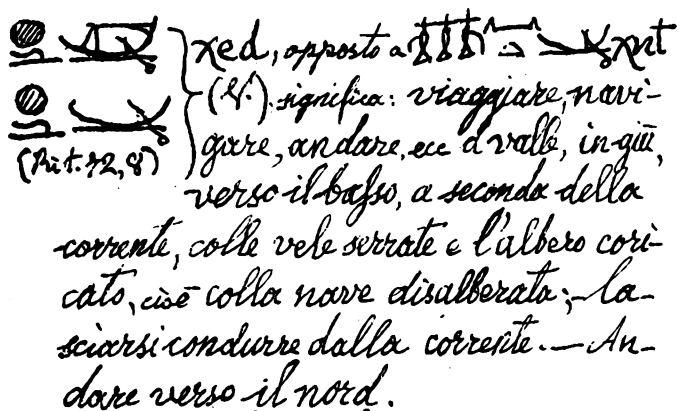 χed, opposto a χnt
(V.) significa: viaggiare, navi-
(Rit. 12, 8) gare, andare, ecc a valle, in giù,
verso il basso, a seconda della
corrente, colle vele serrate e l'albero cori-
cato, cioè colla nave disalberata; — la-
sciarsi condurre dalla corrente. — An-
dare verso il nord.